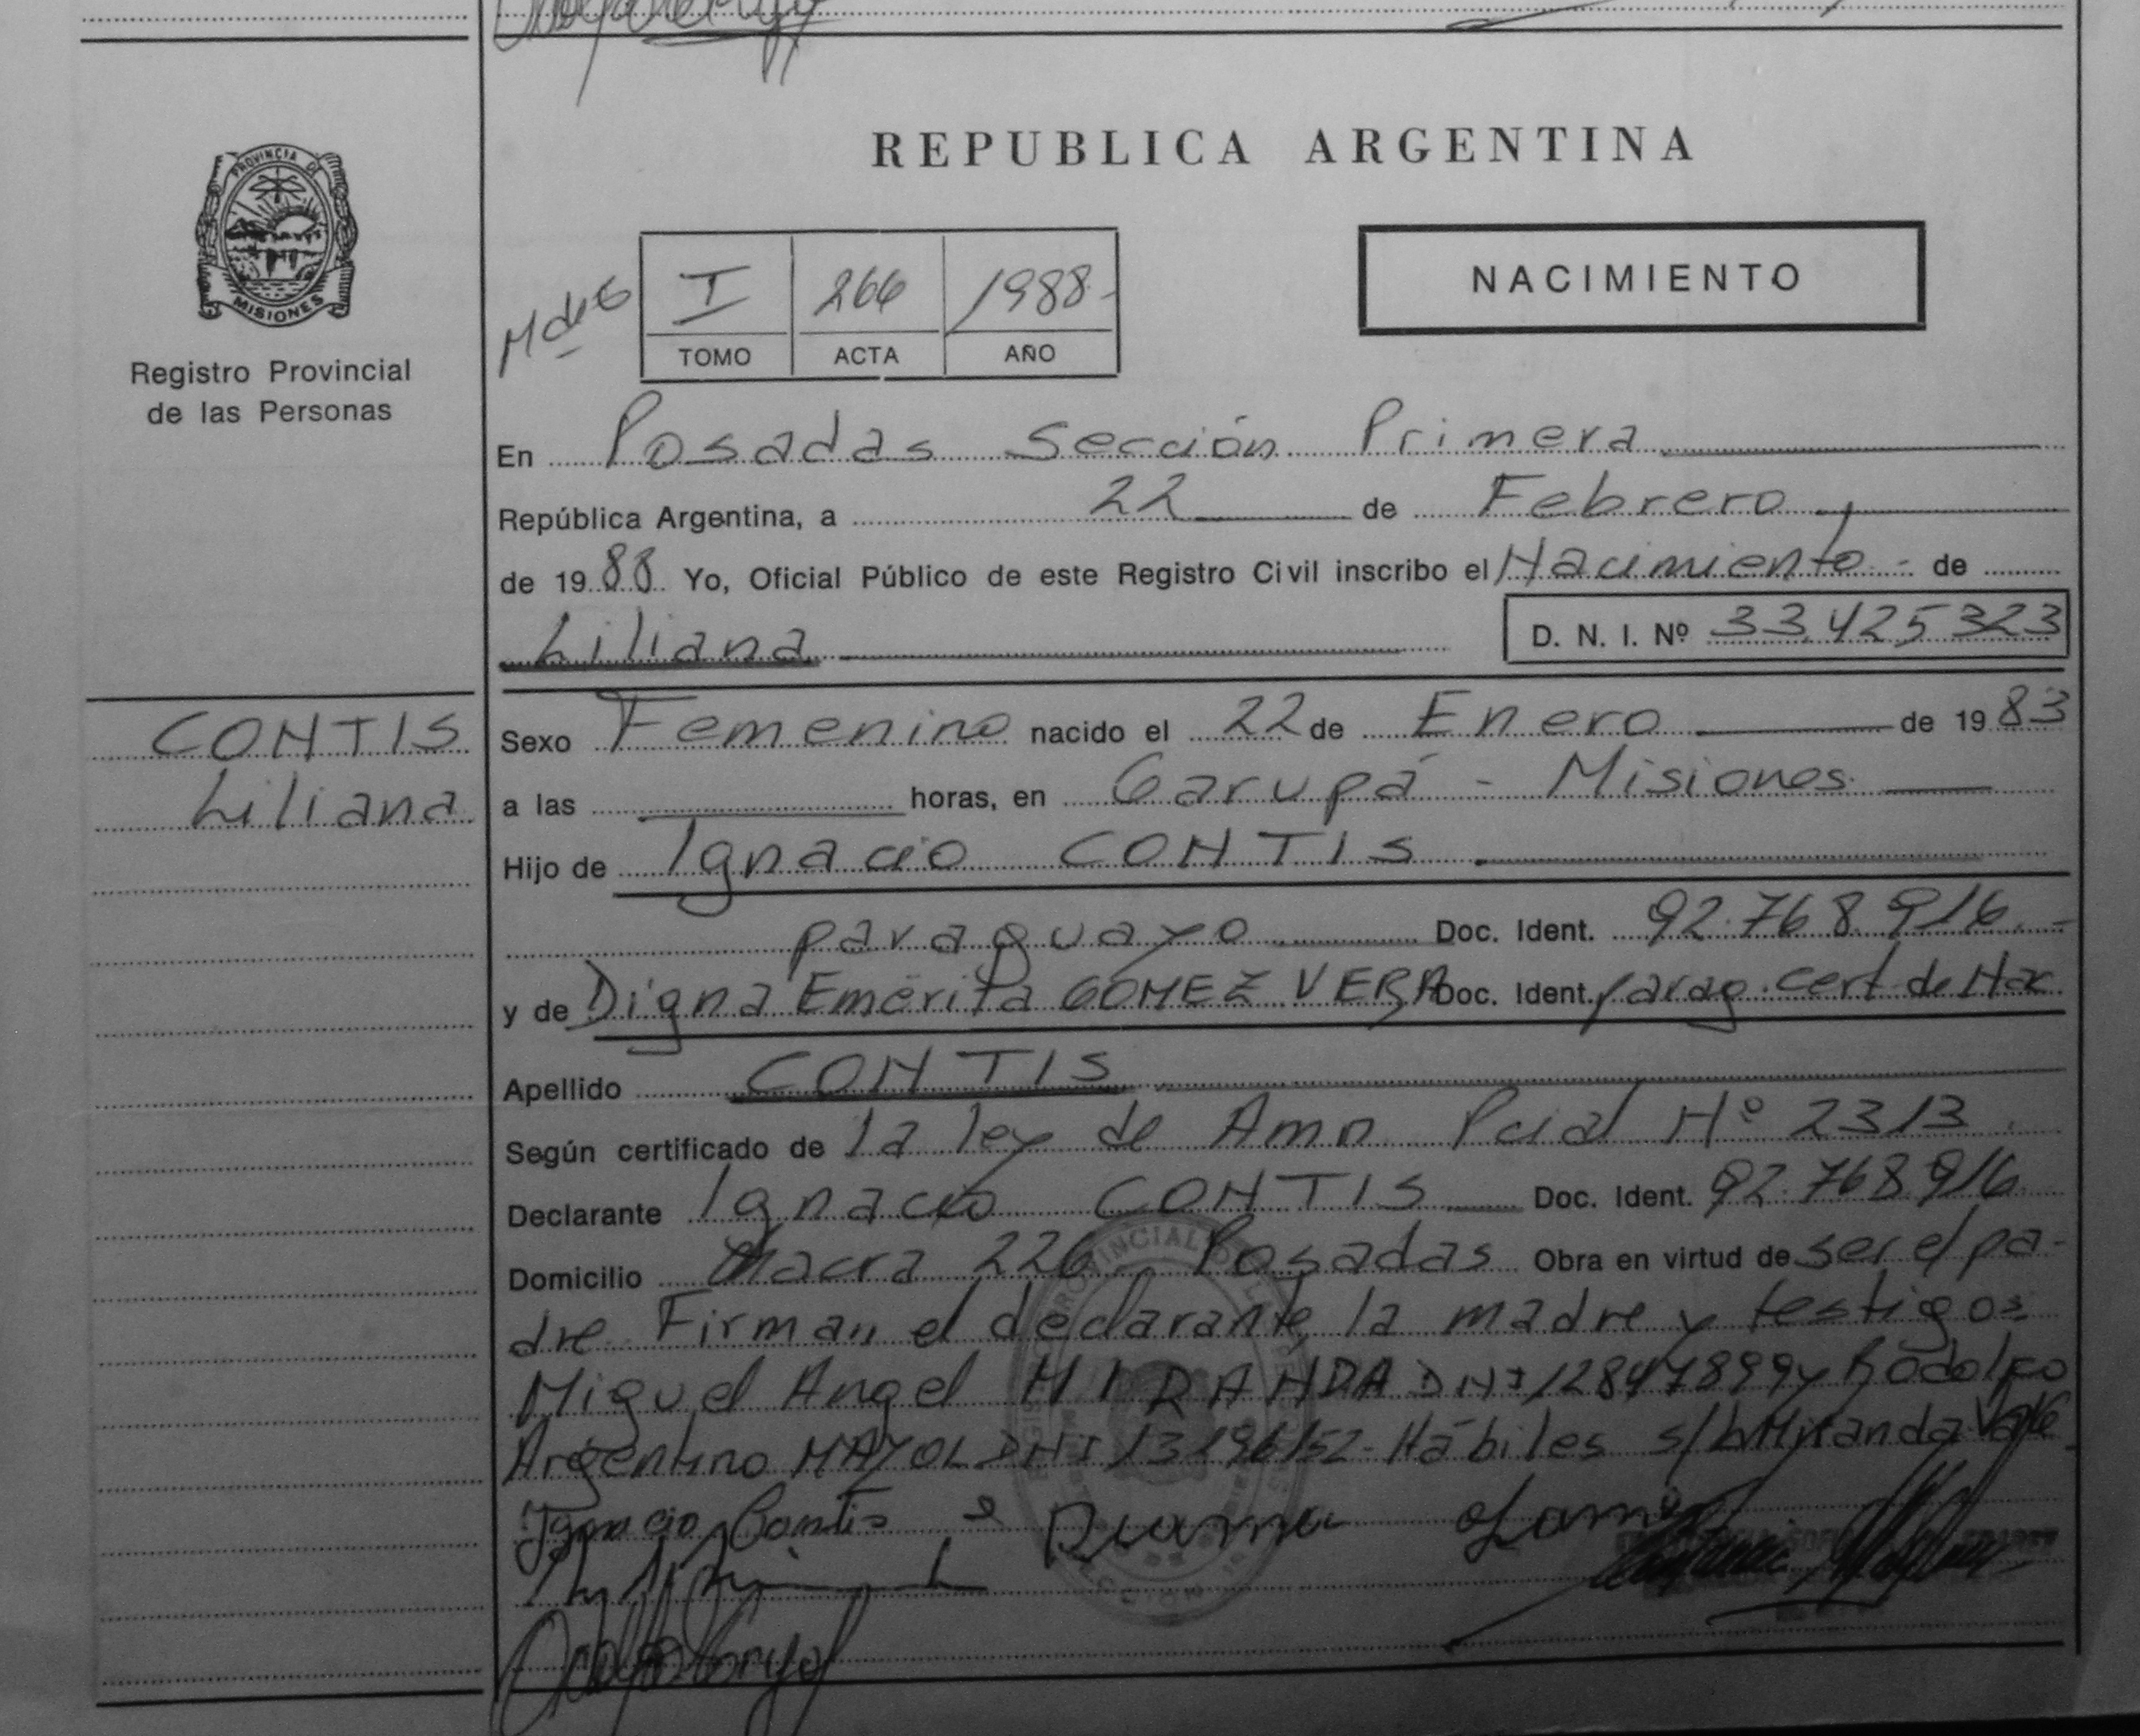 REPUBLICA ARGENTINA
PROVINCIA DE
MISIONES
Registro Provincial
de las Personas
M de G
I 266 1988-
TOMO ACTA AÑO
NACIMIENTO
En Posadas Sección Primera
República Argentina, a 22 de Febrero
de 1988 Yo, Oficial Público de este Registro Civil inscribo el Nacimiento - de
Liliana D. N. I. Nº 33.425323
CONTIS
Liliana
Sexo Femenino nacido el 22 de Enero de 1983
a las horas, en Garupá - Misiones
Hijo de Ignacio CONTIS
paraguayo Doc. Ident. 92.768.916.-
y de Digna Emérita GOMEZ VERA Doc. Ident. parag. cert. de Nac
Apellido CONTIS
Según certificado de la ley de Amn Pcial Nº 2313.
Declarante Ignacio CONTIS Doc. Ident. 92.768916
Domicilio Chacra 226 Posadas Obra en virtud de ser el pa-
dre Firman el declarante, la madre y testigos
Miguel Angel MIRANDA DNI 12847899 y Rodolfo
Argentino MAYOL DNI 13196152- Hábiles s/b Miranda Vale
Ignacio Contis